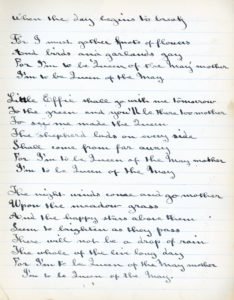 When the day begins to break
For I must gather knots of flowers
And buds and garlands gay
For I'm to be Queen of the May mother
I'm to be Queen of the May
Little Effie shall go with me tomorrow
To the green and you'll be there too mother
To see me made the Queen
The shepherd lads on every side
Shall come from far away
For I'm to be Queen of the May mother
I'm to be Queen of the May
The night winds come and go mother
Upon the meadow grass
And the happy stars above them
Seem to brighten as they pass
There will not be a drop of rain
The whole of the live long day
For I'm to be Queen of the May mother
I'm to be Queen of the May